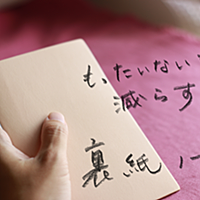 もったいない
減らす
裏紙ノ